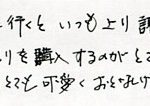 行くと いつも より 
りを購入するのがと
とても 可愛く お